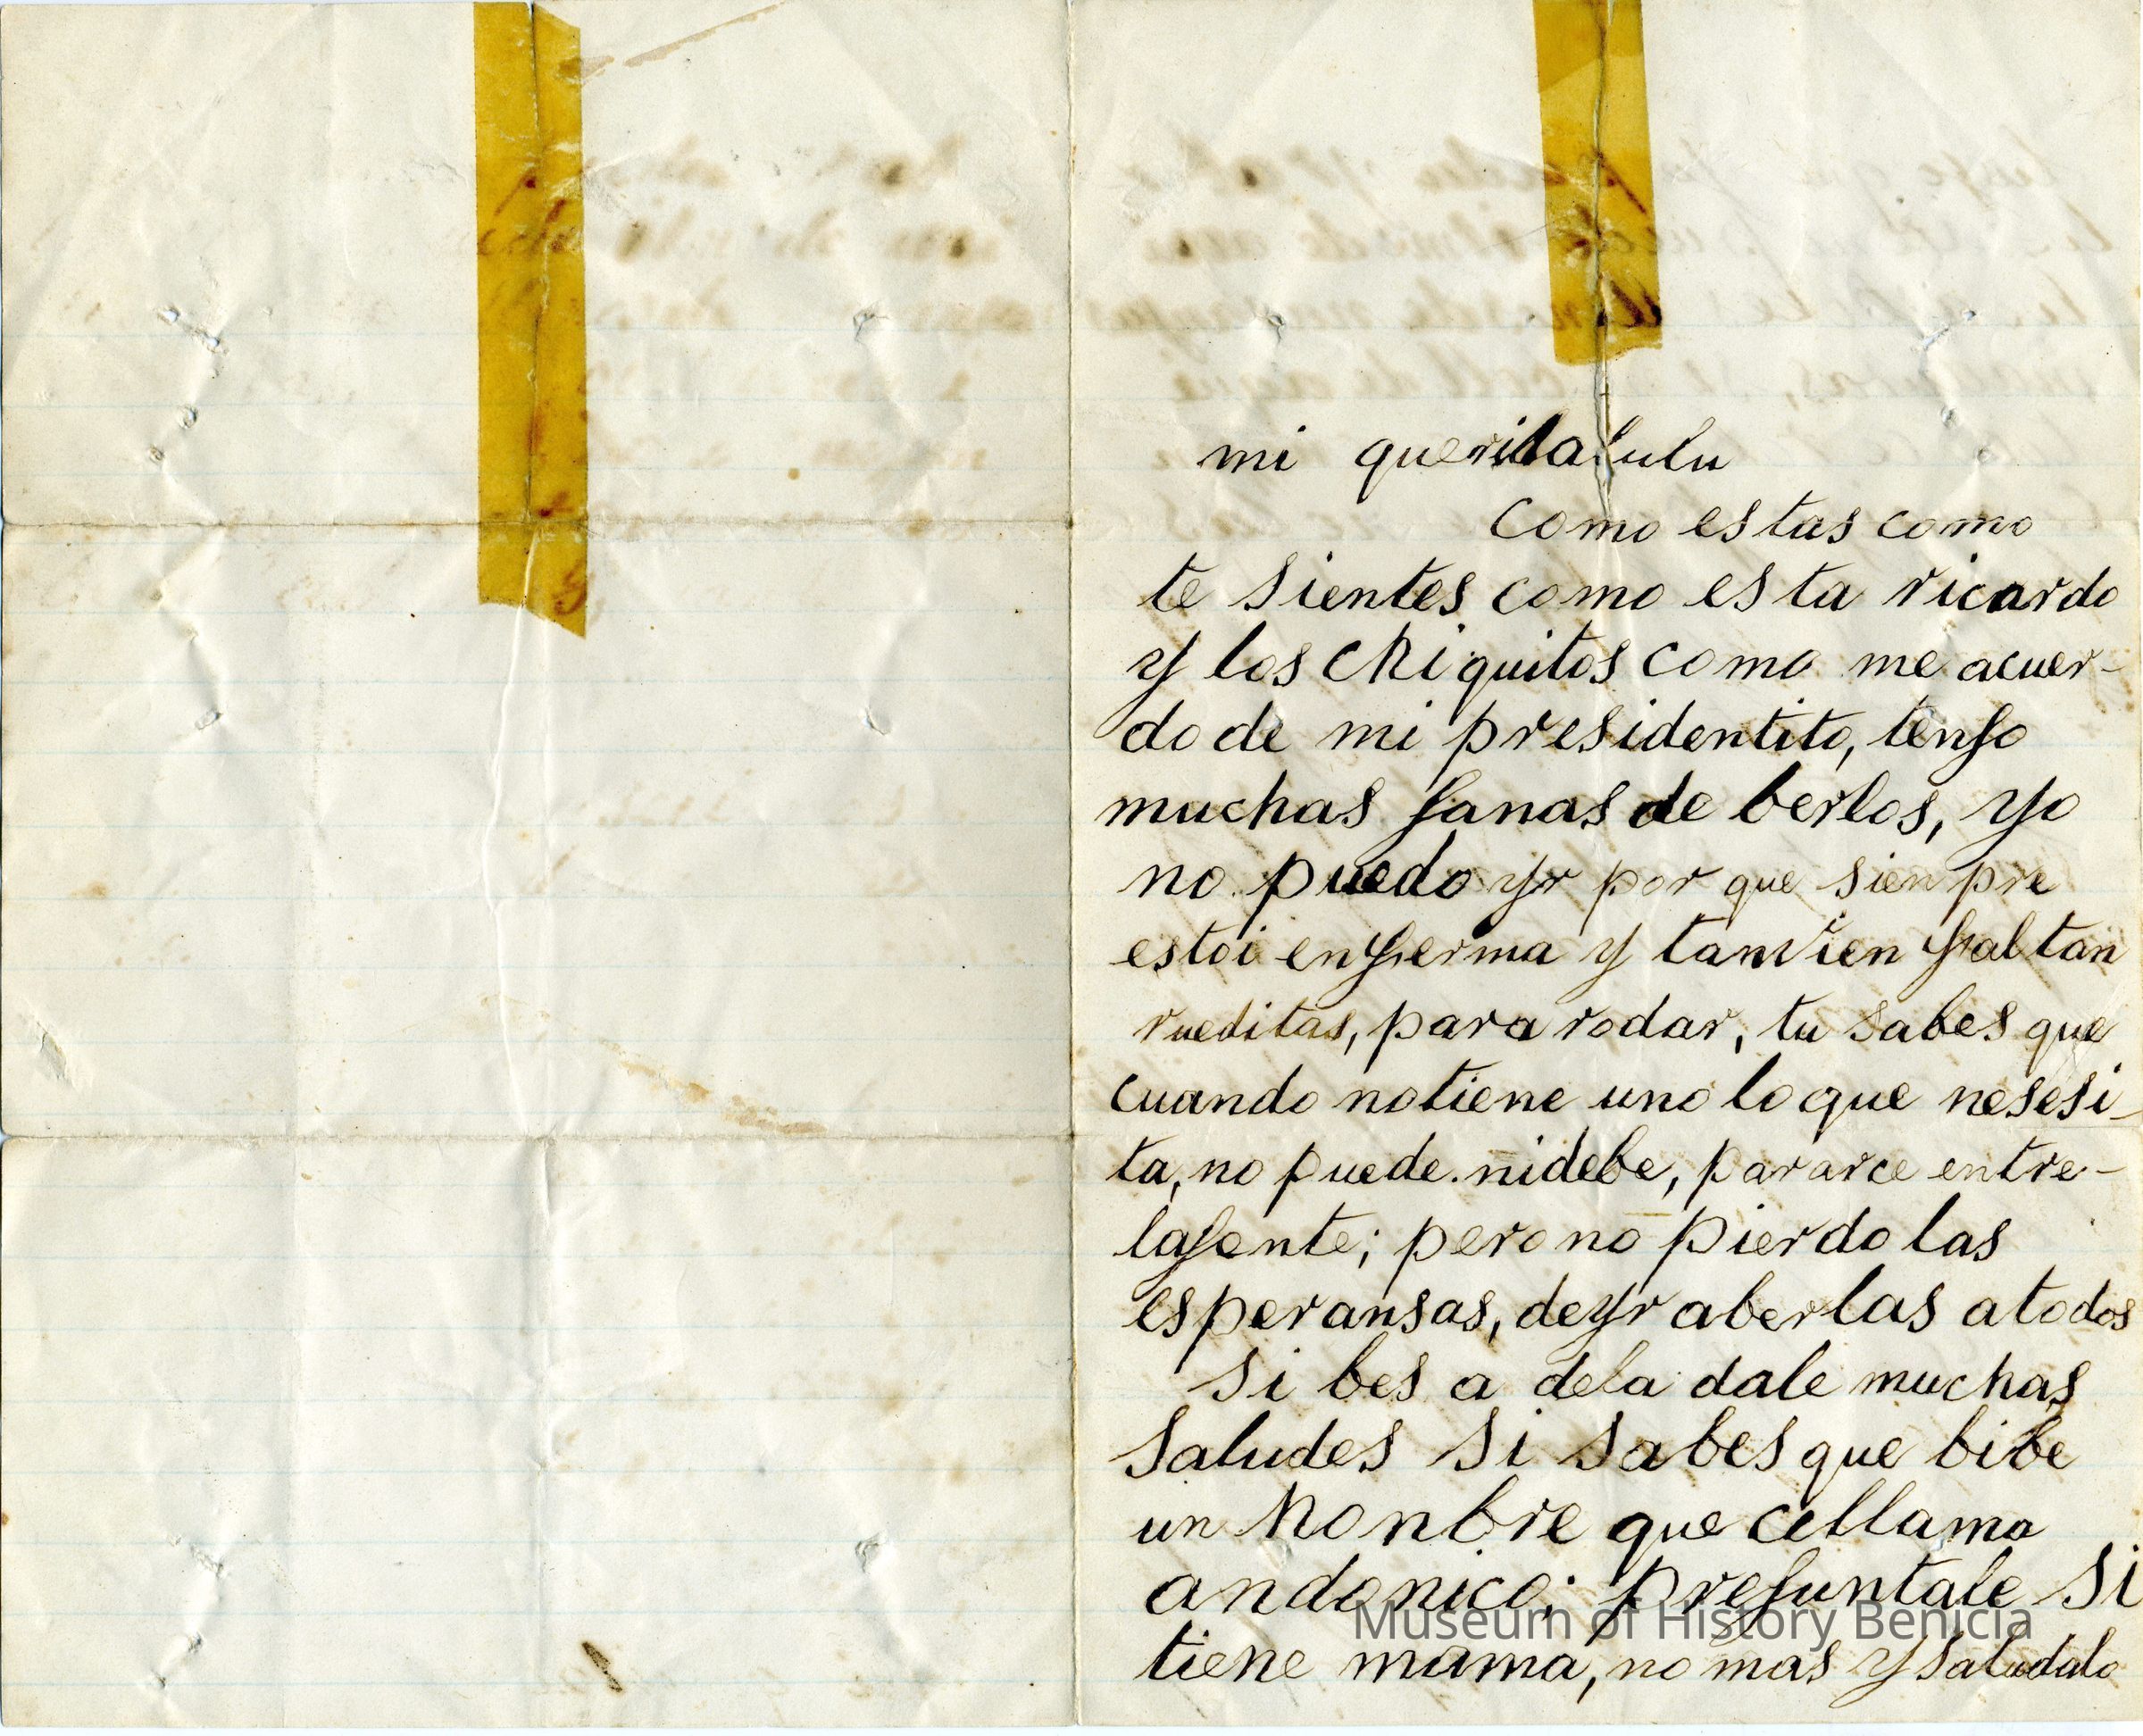 mi querida lulu
Como estas como
te sientes como esta ricardo
y los chiquitos como me acuer-
do de mi presidentito, tengo
muchas ganas de berlos, yo
no puedo yr por que sienpre
estoi enferma y tanvien faltan
rueditas, para rodar, tu sabes que
cuando notiene uno lo que nesesi-
ta, no puede nidebe, pararce entre-
lagente; pero no pierdo las
esperansas, deyr aberlas atodos
si bes a dela dale muchas
saludes si sabes que bibe
un honbre que cellama
andonico; preguntale si
tiene mama, no mas y saludalo
Museum of History Benicia